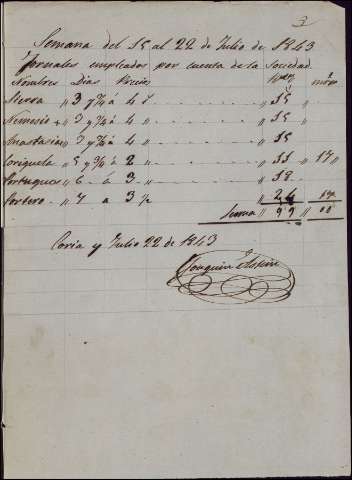 3
Semana del 15 al 22 de Julio de 1843
Jornales empleados por cuenta de la Sociedad
Nombres Dias Precios
Sierra " 3 y ¾ á 4 " 15 "
Nemesio + " 3 y ¾ á 4 " 15 "
Anastasio " 3 y ¾ á 4 " 15
" 5 y ¾ á 2 " 11 " 17 "
Portugues " 6 á 3 " 18
Portero " 7 a 3 " 24
Suma " 99 "
Coria y Julio 22 de 1843
Joaquin